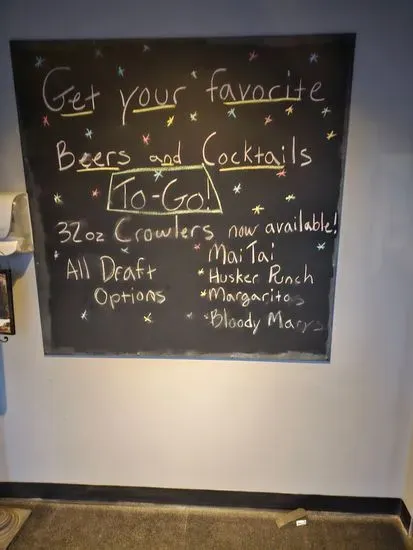 Get your favorite
Beers and Cocktails
To-Go!
32oz Crowlers now available!
All Draft
Options
Mai Tai
* Husker Punch
* Margaritas
* Bloody Marys